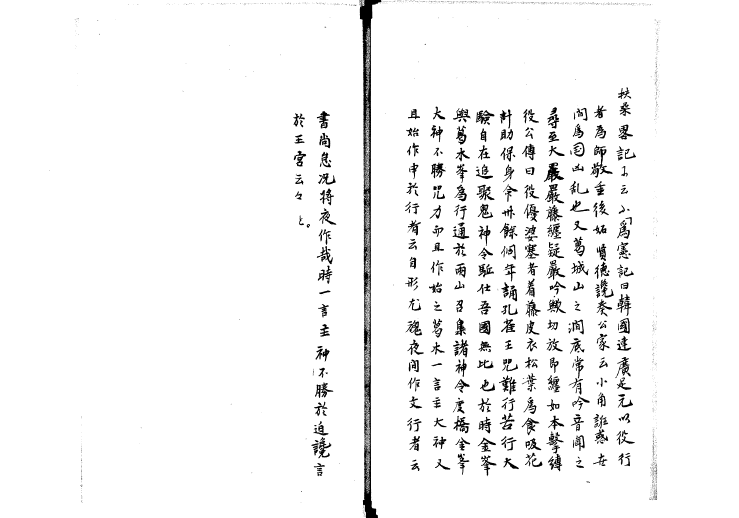 扶桑畧記ニ云小「為憲記曰韓國連廣足元以役行
者為師敬重後妬賢德讒奏公家云小角誑惑世
間為国凶乱也又葛城山之澗底常有吟音聞之
尋至大巖巖藤纏疑巖吟歟切放即纏如本擊縛
役公傳曰役優婆塞者着藤皮衣松葉為食吸花
汁助保身命卅餘個年誦孔雀王咒難行苦行大
驗自在追聚鬼神令駈仕吾國無比也於時金峯
與葛木峯為行通於兩山召集諸神令度橋金峯
大神不勝咒力而且作始之葛木一言主大神又
且始作申於行者云自形尤醜夜間作文行者云
書尚怠况將夜作哉時一言主神不勝於追讒言
於王宮云々と。